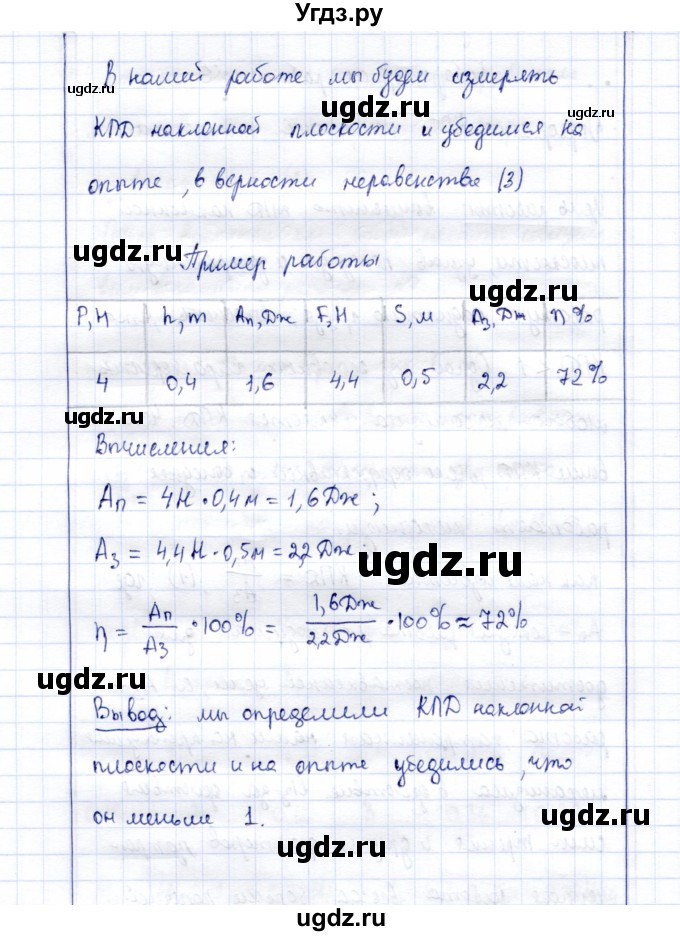 Угдз.ру
В нашей работе мы будем измерять
КПД наклонной плоскости и убедимся на
опыте, в верности неравенства (3)
Пример работы
P, Н h, m Aп, Дж F, Н S, м Aз, Дж η %
4 0,4 1,6 4,4 0,5 2,2 72%
Вычисления:
Aп = 4Н · 0,4м = 1,6 Дж ;
Aз = 4,4Н · 0,5м = 2,2 Дж.
η = Aп/Aз · 100% = 1,6Дж/2,2Дж · 100% ≈ 72%
Вывод: мы определили КПД наклонной
плоскости и на опыте убедились, что
он меньше 1.
ugdz.ru
ugdz.ru
ugdz.ru
ugdz.ru
ugdz.ru
ugdz.ru
ugdz.ru
ugdz.ru
ugdz.ru
ugdz.ru
ugdz.ru